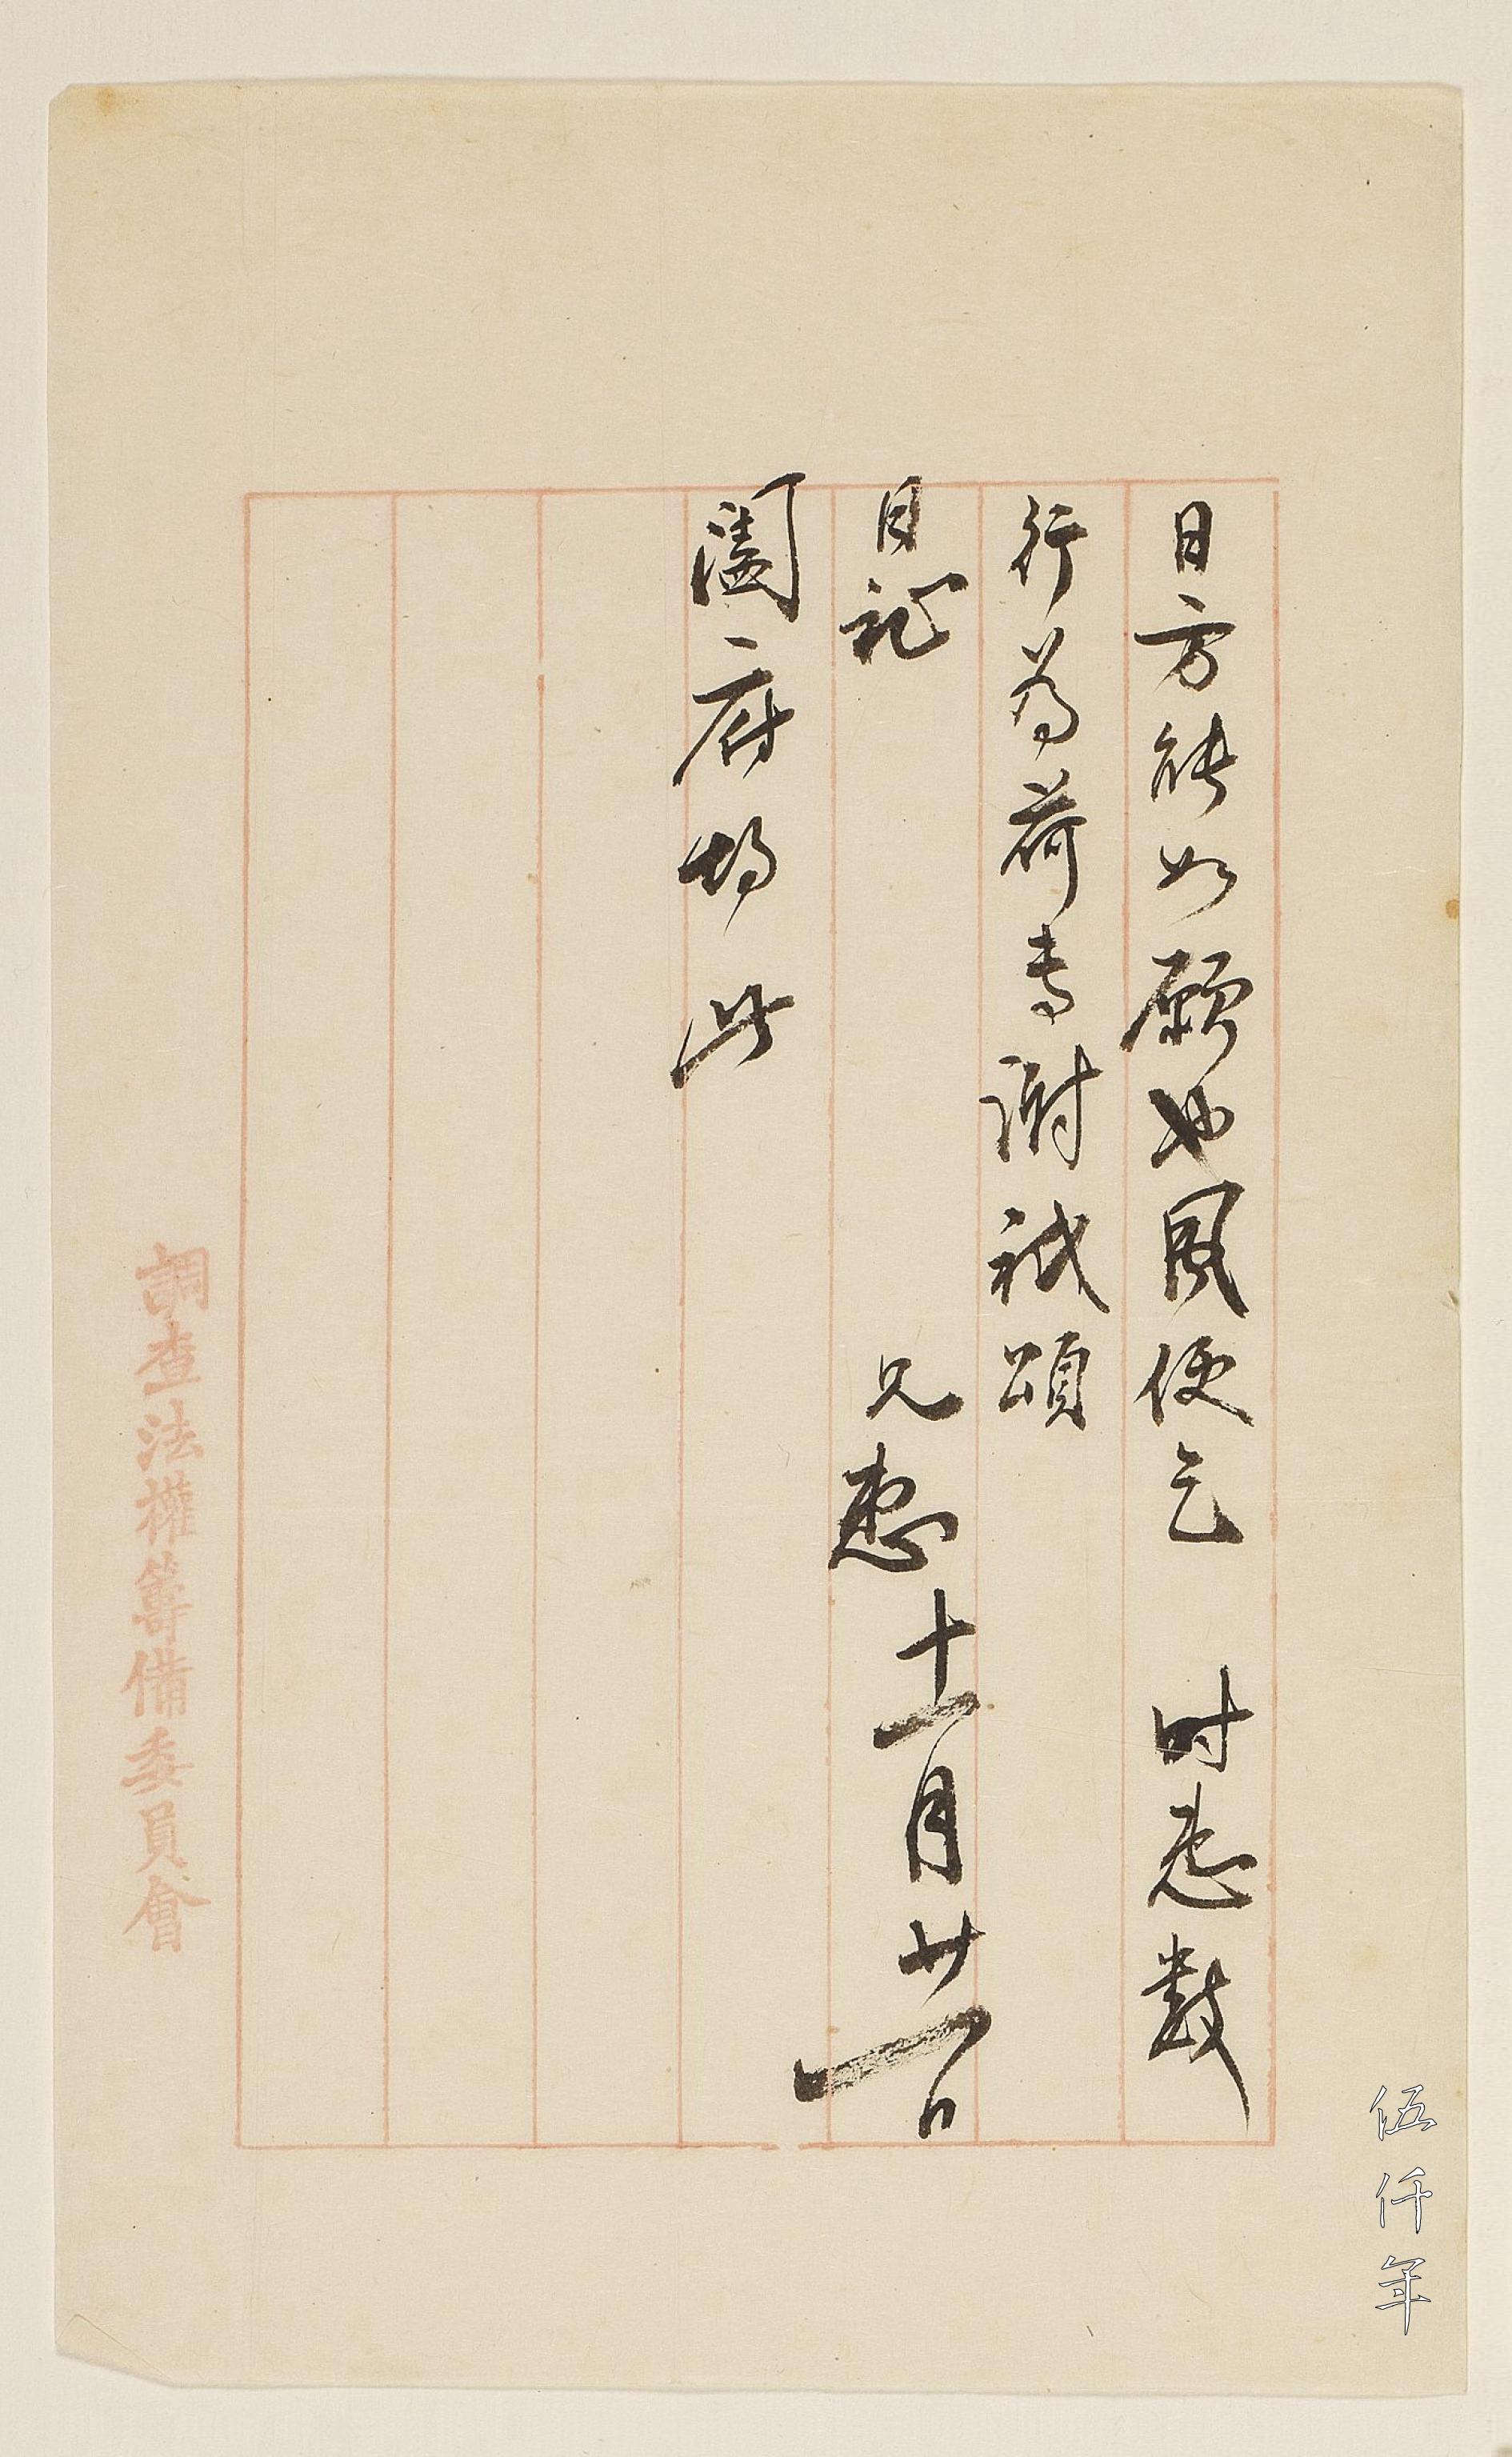 日方能如願也風便乞 时惠數
行為荷专谢祇頌
日祉 兄惠十一月廿一日
闔府均此
調查法權籌備委員會
伍仟年